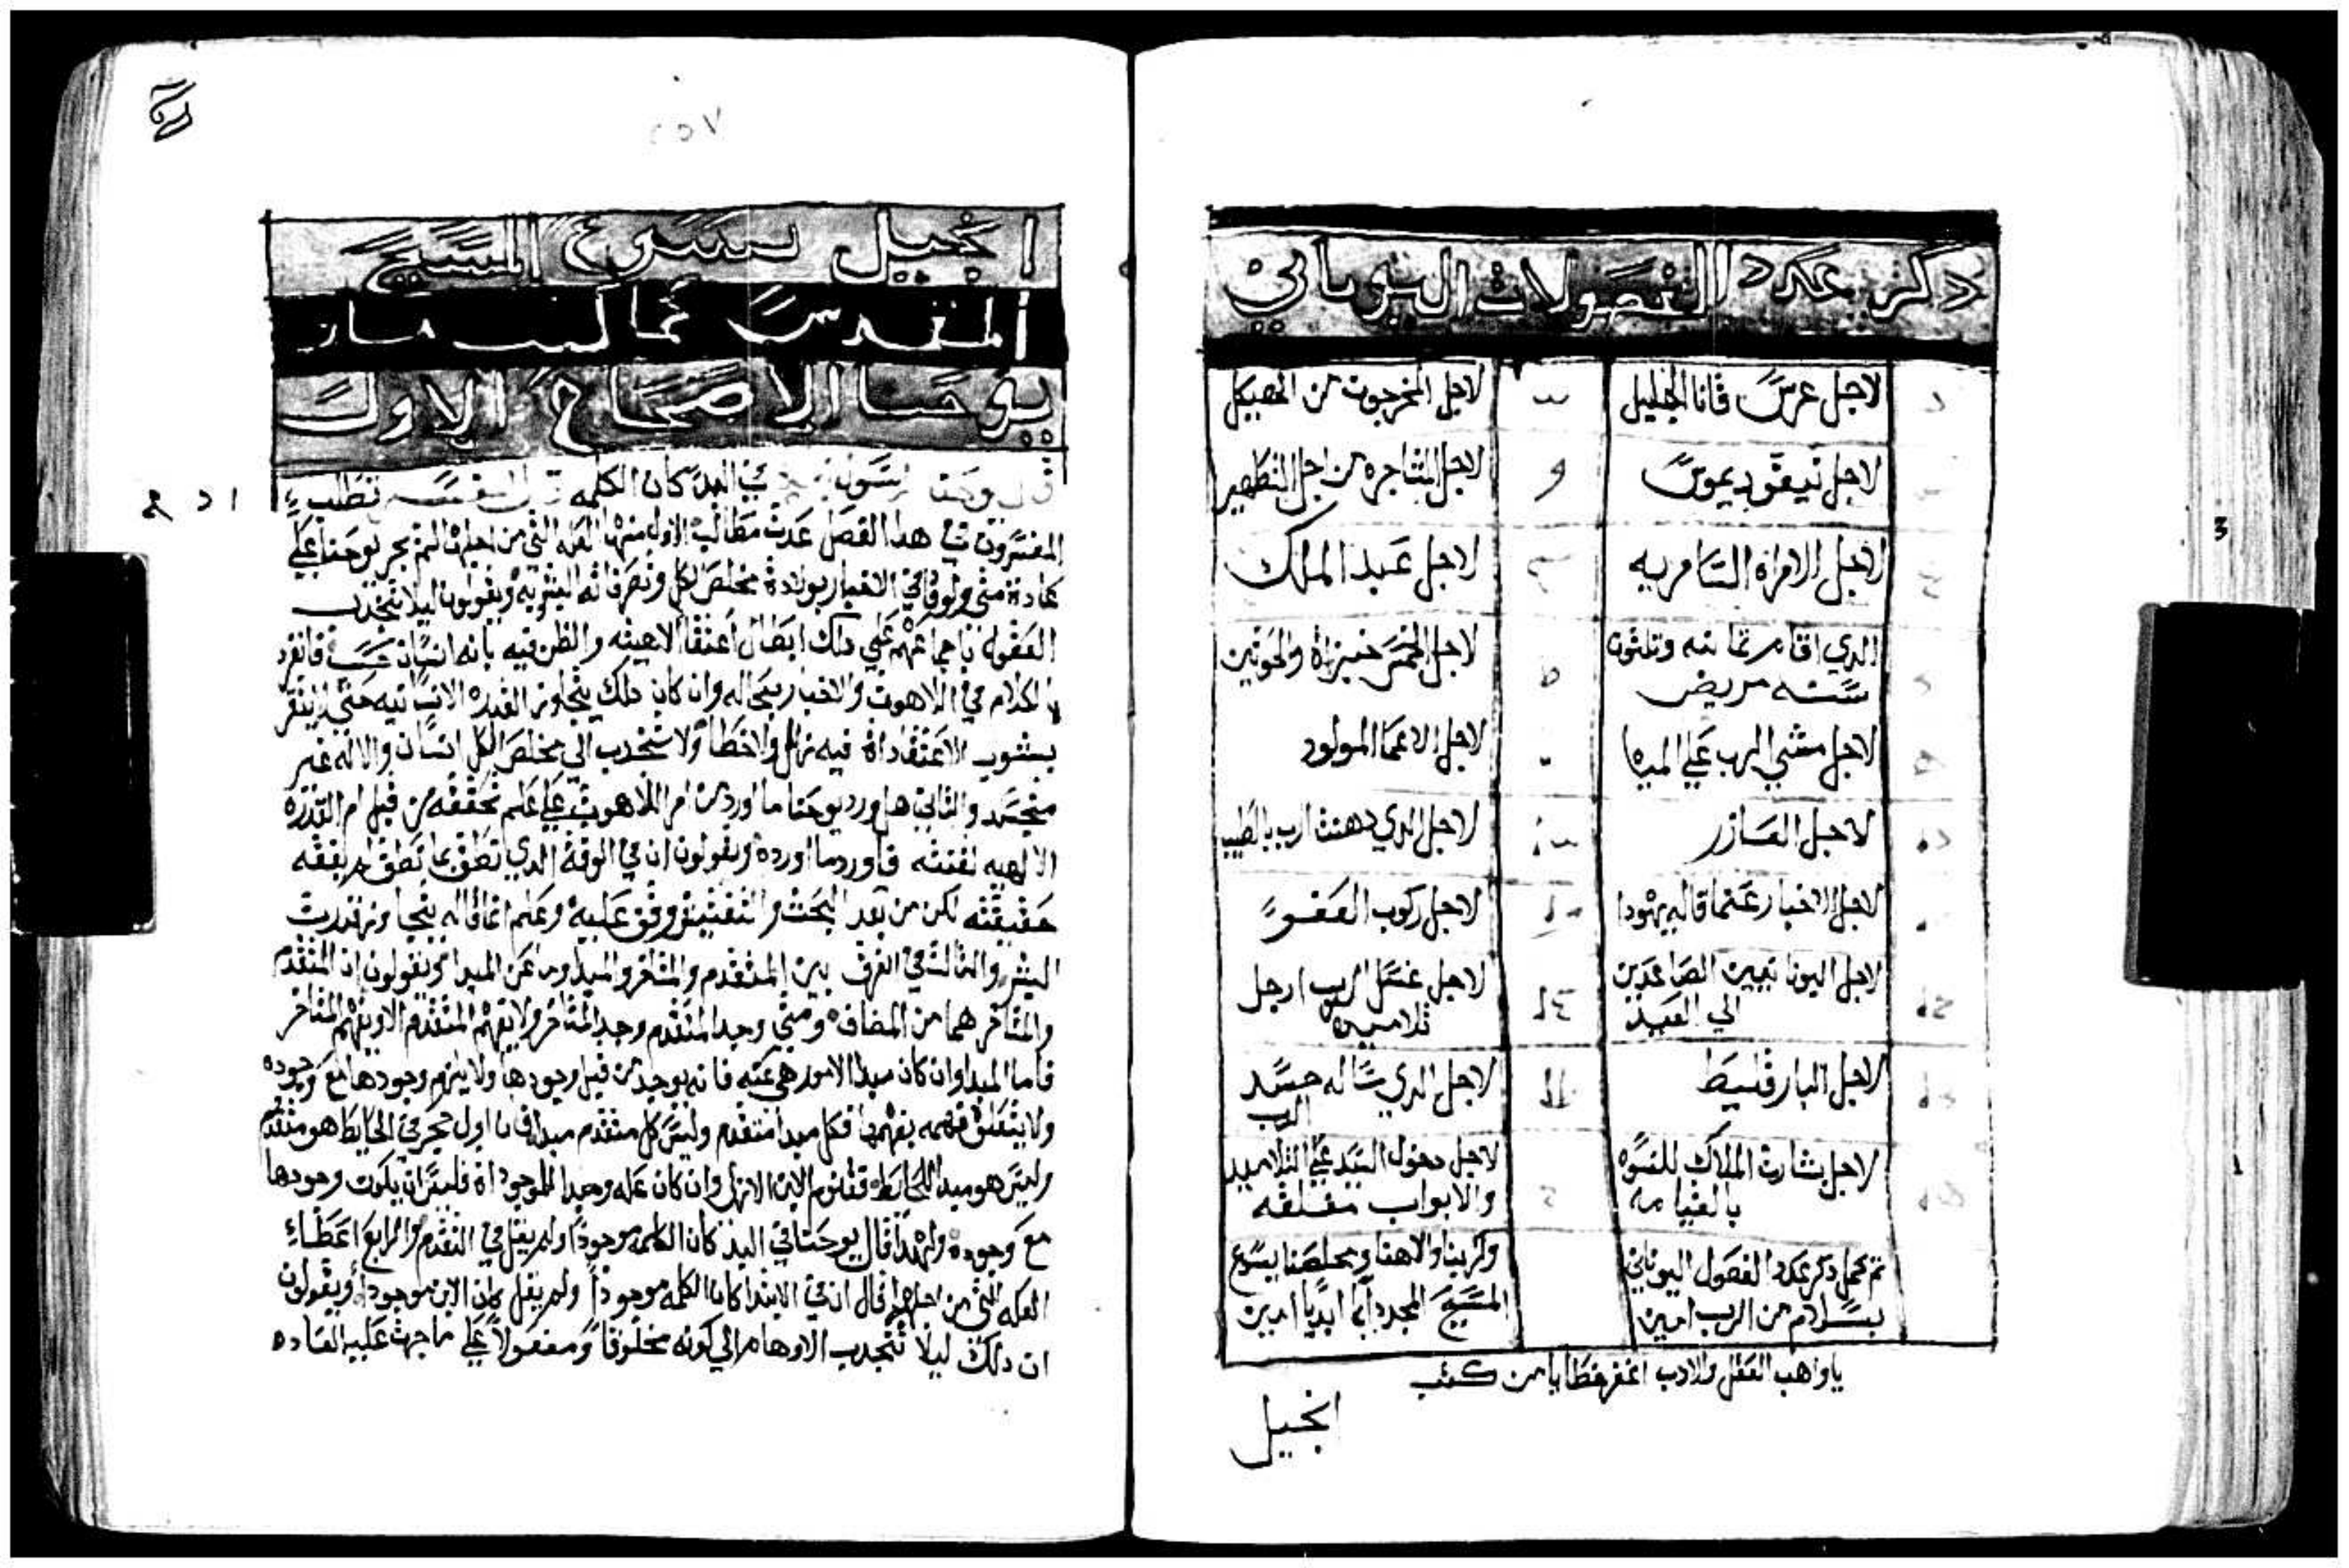 ذكر عدد الفصولات اليوناني
لاجل عرس قانا الجليل
لاجل المخرجون من الهيكل
لاجل نيقوديموس
لاجل المناجره من اجل التطهير
لاجل الامراه السامريه
لاجل عبد الملك
الدي اقام تمانيه وتلثون
سنه مريض
لاجل الخمس خبزاة والحوتين
لاجل مشي الرب علي المياه
لاجل الاعما المولود
لاجل العازر
لاجل الدي دهنت الرب بالطيب
لاجل الاخبار عنما قاله يهودا
لاجل ركوب العفو
لاجل اليونانيين الصاعدين
الي العيد
لاجل غسل الرب ارجل
تلاميده
لاجل البارقليط
لاجل الدي ساله جسد
الرب
لاجل بشارة الملاك للنسوه
بالقيامه
لاجل دخول السيد علي التلاميد
والابواب مغلقه
تم كمل دكر عدد الفصول اليوناني
بسلام من الرب امين
ولربنا والاهنا ومخلصنا يسوع
المسيح المجد ابديا امين
ياواهب العقل والادب اغفر خطايا من كتب
انجيل
٢٥٧
انجيل يسوع المسيح
المقدس مما كتب مار
يوحنا الاصحاح الاول
في البد كان الكلمه قال المفسر تطلب
المفسرون في هدا الفصل عدت مطالب الاول منها العله التي من اجلها لم يجر يوحنا علي
عادة متي ولوقا في الاخبار بولادة مخلص الكل وتصرفاته البشريه ويقولون ليلا تنجدب
العقول باجماعهم علي دلك ابطال اعتقاد الاهيته والظن فيه بانه انسان حسب فانفرد
الكلام في اللاهوت والاخبار بحاله وان كان دلك يتجاوز القدره الانسانيه حتي
يشوب الاعتقاداة فيه زلل والاخطا ولا تنجدب الي مخلص الكل انسان والاله غير
متجسد والتاني هل ورد يوحنا ما اورد من امر اللاهوت علي علم تحققه من قبل ام القدره
الالهيه لقنته فاورد ما اورده ويقولون ان في الوقت الدي نطق بما نطق لم يفقه
حقيقته لكن من بعد البحث والتفتيش وقف عليه وعلم انما قاله يتجاوز قدرت
البشر والتالت في الفرق بين المتقدم والمتاخر والمبدا وما عن المبدا ويقولون ان المتقدم
والمتاخر هما من المضاف ومتي وجد المتقدم وجد المتاخر ولا يفهم المتقدم الا ويفهم المتاخر
فاما المبدا وان كان مبدا لامور هي عنه فانه يوجد من قبل وجودها ولا يلزم وجودها مع وجوده
ولا يتعلق فهمه بفهمها فكل مبدا متقدم وليس كل متقدم مبدا فان اول حجر في الحايط هو متقدم
وليس هو مبدا للحايط فقنوم الابن الازلي وان كان عله ومبدا للموجوداة فليس ان يكون وجودها
مع وجوده ولهدا قال يوحنا في البد كان الكلمه موجودا ولم يقل في التقدم والرابع اعطاء
العله التي من اجلها قال ان في الابتدا كان الكلمه موجودا ولم يقل كان الابن موجودا ويقولون
ان دلك ليلا تنجدب الاوهام الي كونه مخلوقا ومفعولا علي ما جرت عليه العاده